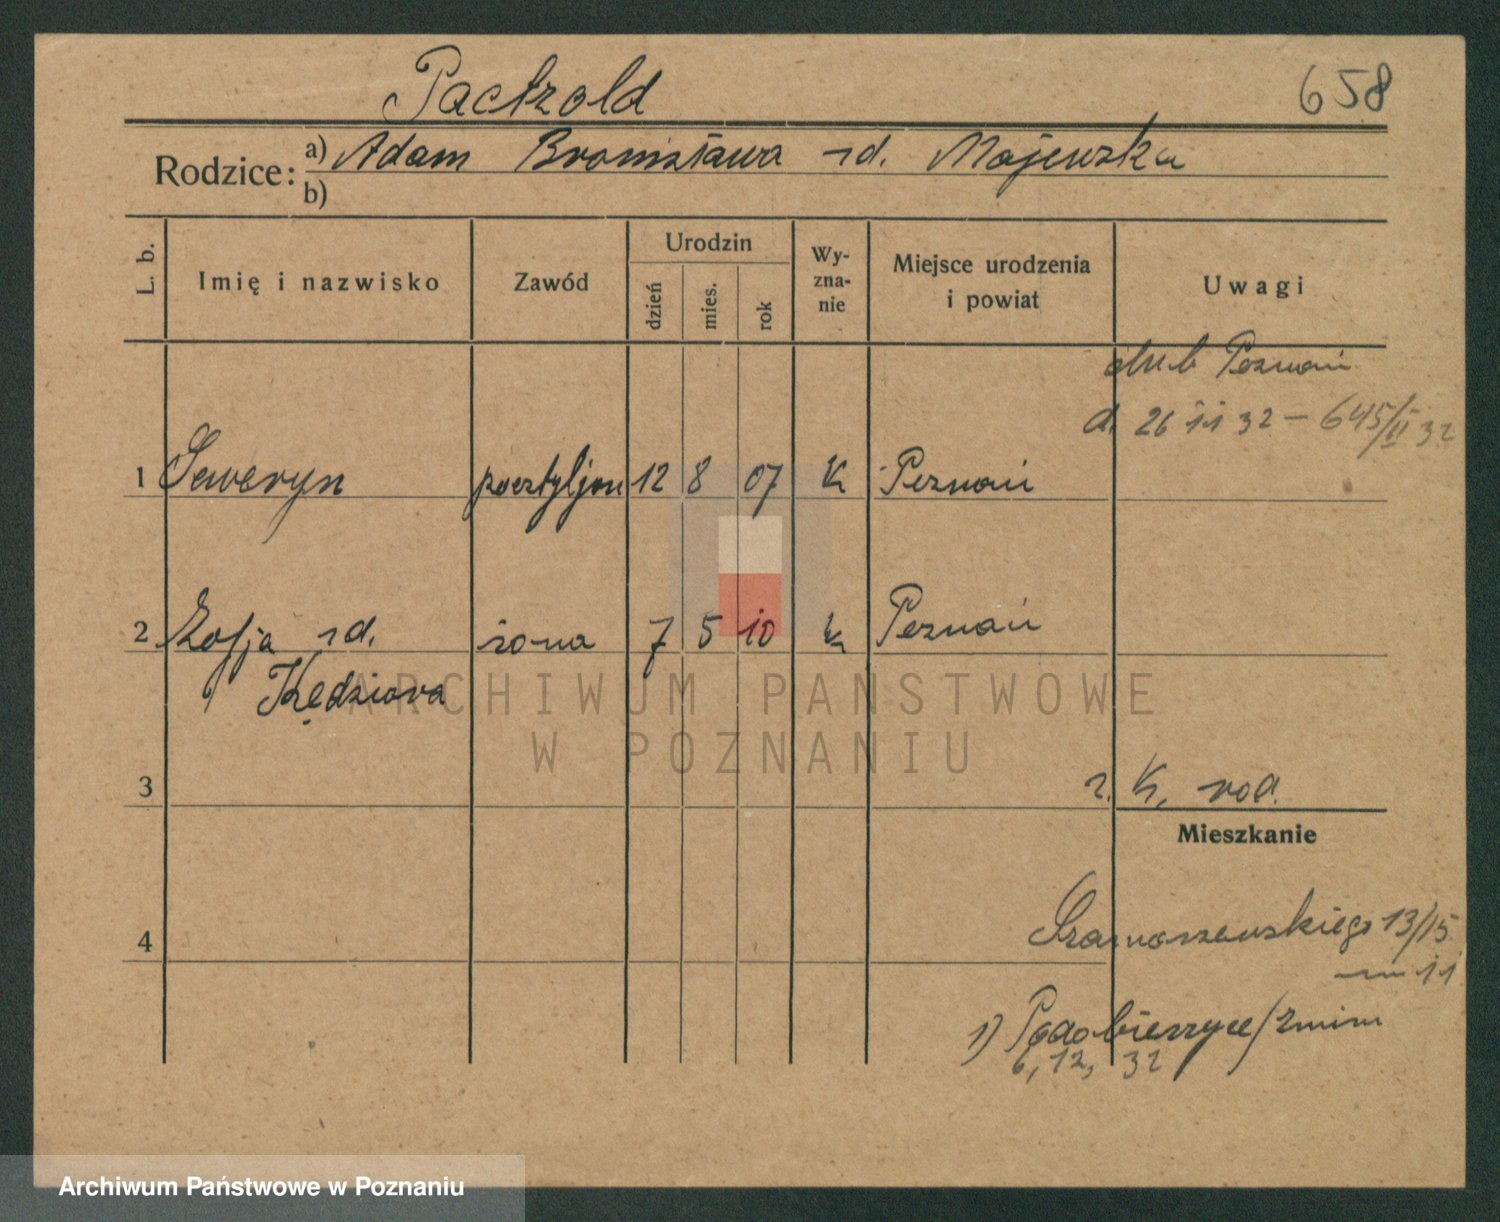 Paetzold 658
Rodzice: a) Adam Bronisława rd. Majewska
b)
L. b. Imię i nazwisko Zawód Urodzin dzień mies. rok Wy-zna-nie Miejsce urodzenia i powiat Uwagi
ślub Poznań
d. 26 11 32 – 645/II 32
1 Seweryn pocztyljon 12 8 07 k Poznań
2 Zofja rd. żona 7 5 10 k Poznań
Kędziora
ARCHIWUM PAŃSTWOWE
W POZNANIU
3 r. K. rod.
Mieszkanie
4 Szamarzewskiego 13/15
m 11
1)
6, 12, 32
Archiwum Państwowe w Poznaniu